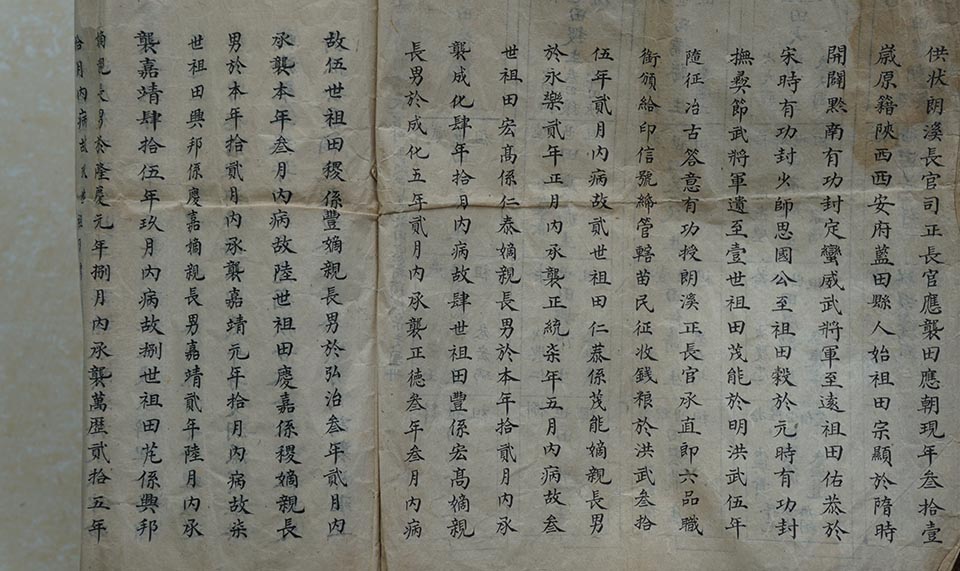 供狀朗溪長官司正長官應襲田應朝現年叁拾壹
歲原籍陝西西安府藍田縣人始祖田宗顯於隋時
開闢黔南有功封定蠻威武將軍至遠祖田佑恭於
宋時有功封少師思國公至祖田穀於元時有功封
撫彜節武將軍遺至壹世祖田茂能於明洪武伍年
隨征冶古答意有功授朗溪正長官承直郎六品職
銜頒給印信號締管轄苗民征收錢粮於洪武叁拾
伍年貳月內病故貳世祖田仁恭係茂能嫡親長男
於永樂貳年正月內承襲正統柒年五月內病故叁
世祖田宏高係仁泰嫡親長男於本年拾貳月內承
襲成化肆年拾月內病故肆世祖田豐係宏高嫡親
長男於成化五年貳月內承襲正德叁年叁月內病
故伍世祖田稷係豐嫡親長男於弘治叁年貳月內
承襲本年叁月內病故陸世祖田慶嘉係稷嫡親長
男於本年拾貳月內承襲嘉靖元年拾月內病故柒
世祖田興邦係慶嘉嫡親長男嘉靖貳年陸月內承
襲嘉靖肆拾伍年玖月內病故捌世祖田係興邦
嫡親長男於隆慶元年捌月內承襲萬歷貳拾五年
拾月內病故玖世祖田